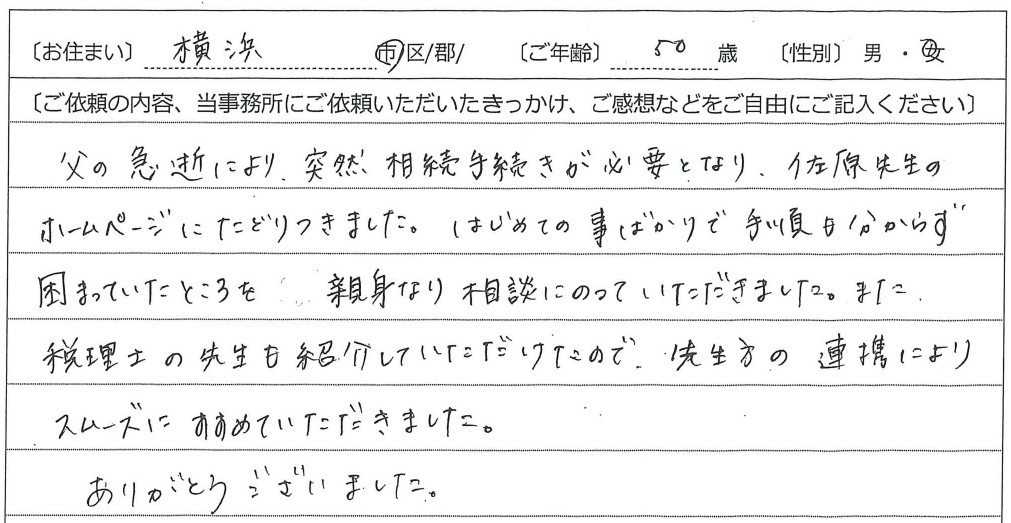 〔お住まい〕 横浜 市/区/郡/ 〔ご年齢〕 50 歳 〔性別〕 男 ・ 女
〔ご依頼の内容、当事務所にご依頼いただいたきっかけ、ご感想などをご自由にご記入ください〕
父の急逝により、突然相続手続きが必要となり、佐原先生の
ホームページにたどりつきました。はじめての事ばかりで手順も分からず
困まっていたところを 親身なり相談にのっていただきました。また
税理士の先生も紹介していただけたので、先生方の連携により
スムーズにすすめていただきました。
ありがとうございました。